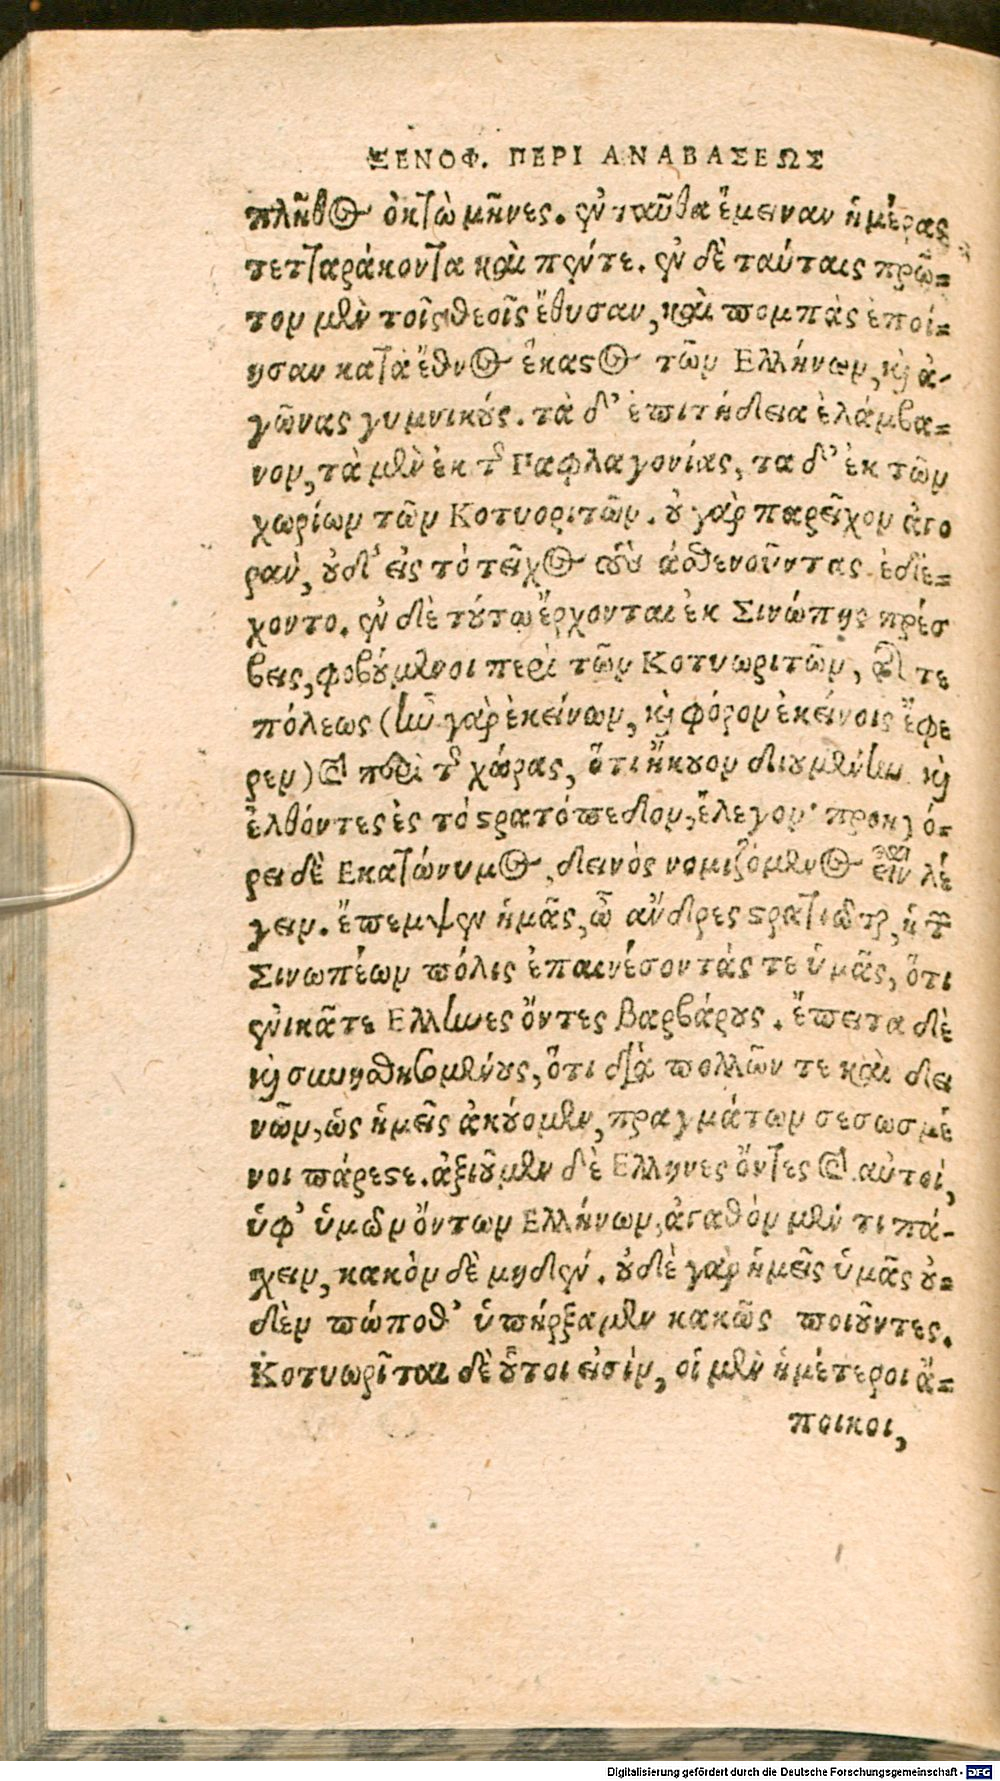 ΞΕΝΟΦ. ΠΕΡΙ ΑΝΑΒΑΣΕΩΣ
πλῆθος ὀκτὼ μῆνες. ἐνταῦθα ἔμειναν ἡμέρας
τετταράκοντα καὶ πέντε. ἐν δὲ ταύταις πρῶ=
τον μὲν τοῖς θεοῖς ἔθυσαν, καὶ πομπὰς ἐποί=
ησαν κατὰ ἔθνος ἕκαστος τῶν Ελλήνων, καὶ ἀ-
γῶνας γυμνικούς. τὰ δ' ἐπιτήδεια ἐλάμβα=
νον, τὰ μὲν ἐκ τῆς Παφλαγονίας, τα δ' ἐκ τῶν
χωρίων τῶν Κοτυοριτῶν. οὐ γὰρ παρεῖχον ἀγο
ραν, οὐδ' εἰς τὸ τεῖχος τοὺς ἀσθενοῦντας ἐδέ=
χοντο. ἐν δὲ τούτῳ ἔρχονται ἐκ Σινώπης πρέσ
βεις, φοβούμενοι περὶ τῶν Κοτυωριτῶν, τῆς τε
πόλεως (ἦν γὰρ ἐκείνων, καὶ φόρον ἐκείνοις ἔφε
ρεν) καὶ περὶ τῆς χώρας, ὅτι ἤκουον δῃουμένην καὶ
ἐλθόντες ἐς τὸ στρατόπεδον, ἔλεγον· προηγό=
ρει δὲ Εκατώνυμος, δεινὸς νομιζόμενος εἶναι λέ
γειν. ἔπεμψεν ἡμᾶς, ὦ ἄνδρες στρατιῶται, ἡ τῶν
Σινωπέων πόλις ἐπαινέσοντάς τε ὑμᾶς, ὅτι
ἐνικᾶτε Ελληνες ὄντες βαρβάρους. ἔπειτα δὲ
καὶ συνησθησομένους, ὅτι διὰ πολλῶν τε καὶ δει
νῶν, ὡς ἡμεῖς ἀκούομεν, πραγμάτων σεσωσμέ
νοι πάρεστε. ἀξιοῦμεν δὲ Ελληνες ὄντες καὶ αὐτοὶ,
ὑφ' ὑμῶν ὄντων Ελλήνων, ἀγαθὸν μέν τι πά-
χειν, κακὸν δὲ μηδέν. οὐδὲ γὰρ ἡμεῖς ὑμᾶς οὐ=
δὲν πώποθ' ὑπήρξαμεν κακῶς ποιοῦντες.
Κοτυωρῖται δὲ οὗτοι εἰσὶν, οἱ μὲν ἡμέτεροι ἄ=
ποικοι,
Digitalisierung gefördert durch die Deutsche Forschungsgemeinschaft - DFG